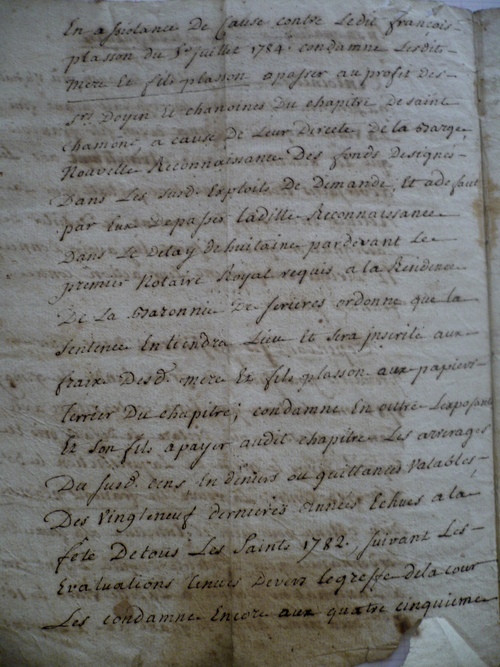 En assistance De Cause contre Ledit françois-
plasson du 5e juillet 1784. condamne Lesdits-
mere Et fils plasson apasser au profit Des-
Srs. Doyen Et chanoines Du chapitre De saint
chamond, a cause de Leur Directe De la Barge,
Nouvelle Reconnaissance Des fonds Designés-
Dans Les surd. Exploits De Demande, Et adefaut
par Eux Depasser Ladille Reconnaissance
Dans Le Delay de huitaine pardevant Le
premier Notaire Royal requis a la Residence
De La Baronnie De ferieres ordonne que la
sentence En tiendra Lieu Et sera inserité aux
fraix Desd. mere Et fils plasson aux papiers-
terrier Du chapitre; condamne En outre L'exposant
Et son fils apayer audit chapitre Les arrerages
Du surd. cens En deniers ou quittances Valables-
Des Vingt neuf dernieres années Echues a la
fête De tous Les Saints 1782. suivant Les-
Evaluations tenues Devers le greffe dela cour
Les condamne Encore aux quatre cinquieme